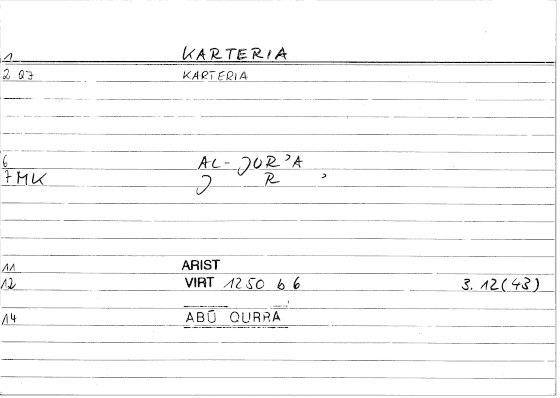 1 KARTERIA
2 07 KARTERIA
6 AL-JUR'A
7 MK J R '
11 ARIST
12 VIRT 1250 b 6 3.12(43)
14 ABŪ QURRA